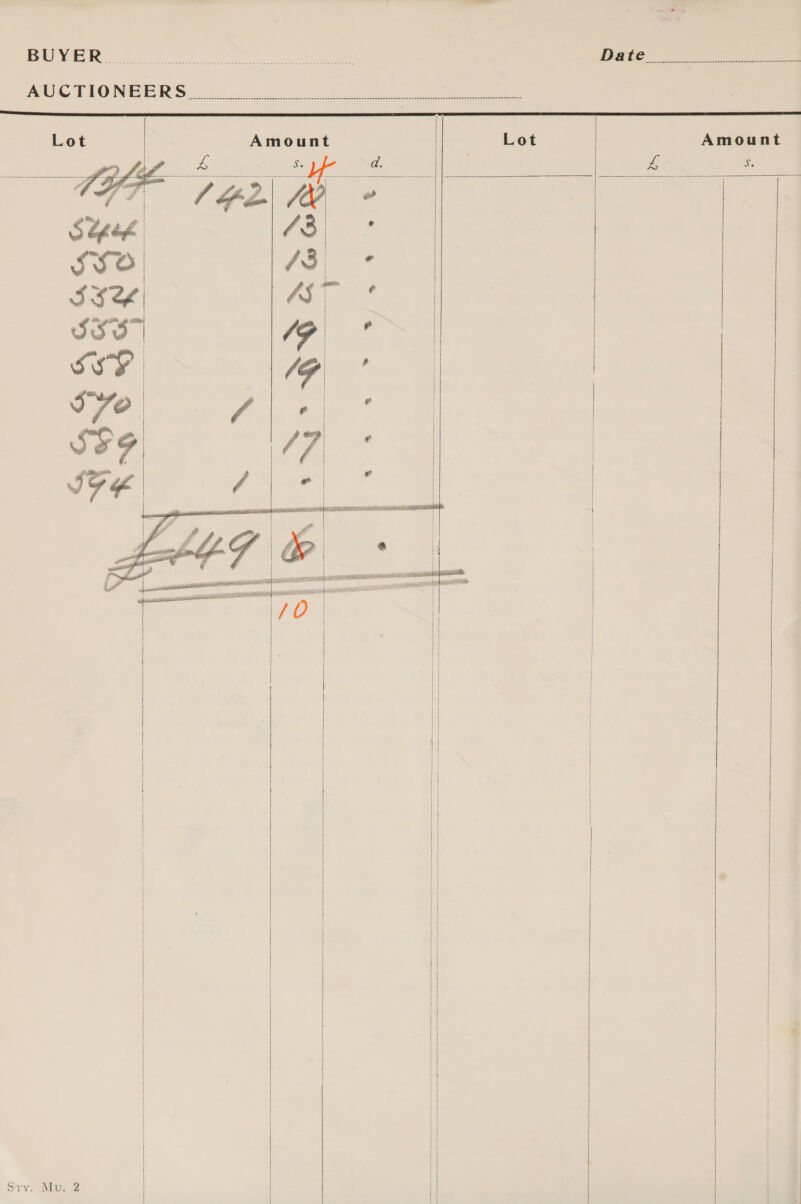 BUYER Date
AUCTIONEERS
Lot Amount Lot Amount
£ s. d. £ s.
4
B/F 142 10 -
544 13 -
550 13 -
552 15 -
555 19 -
558 19 -
570 1 - -
589 17 -
594 1 - -
£149 6 -
10
Sty. Mu. 2